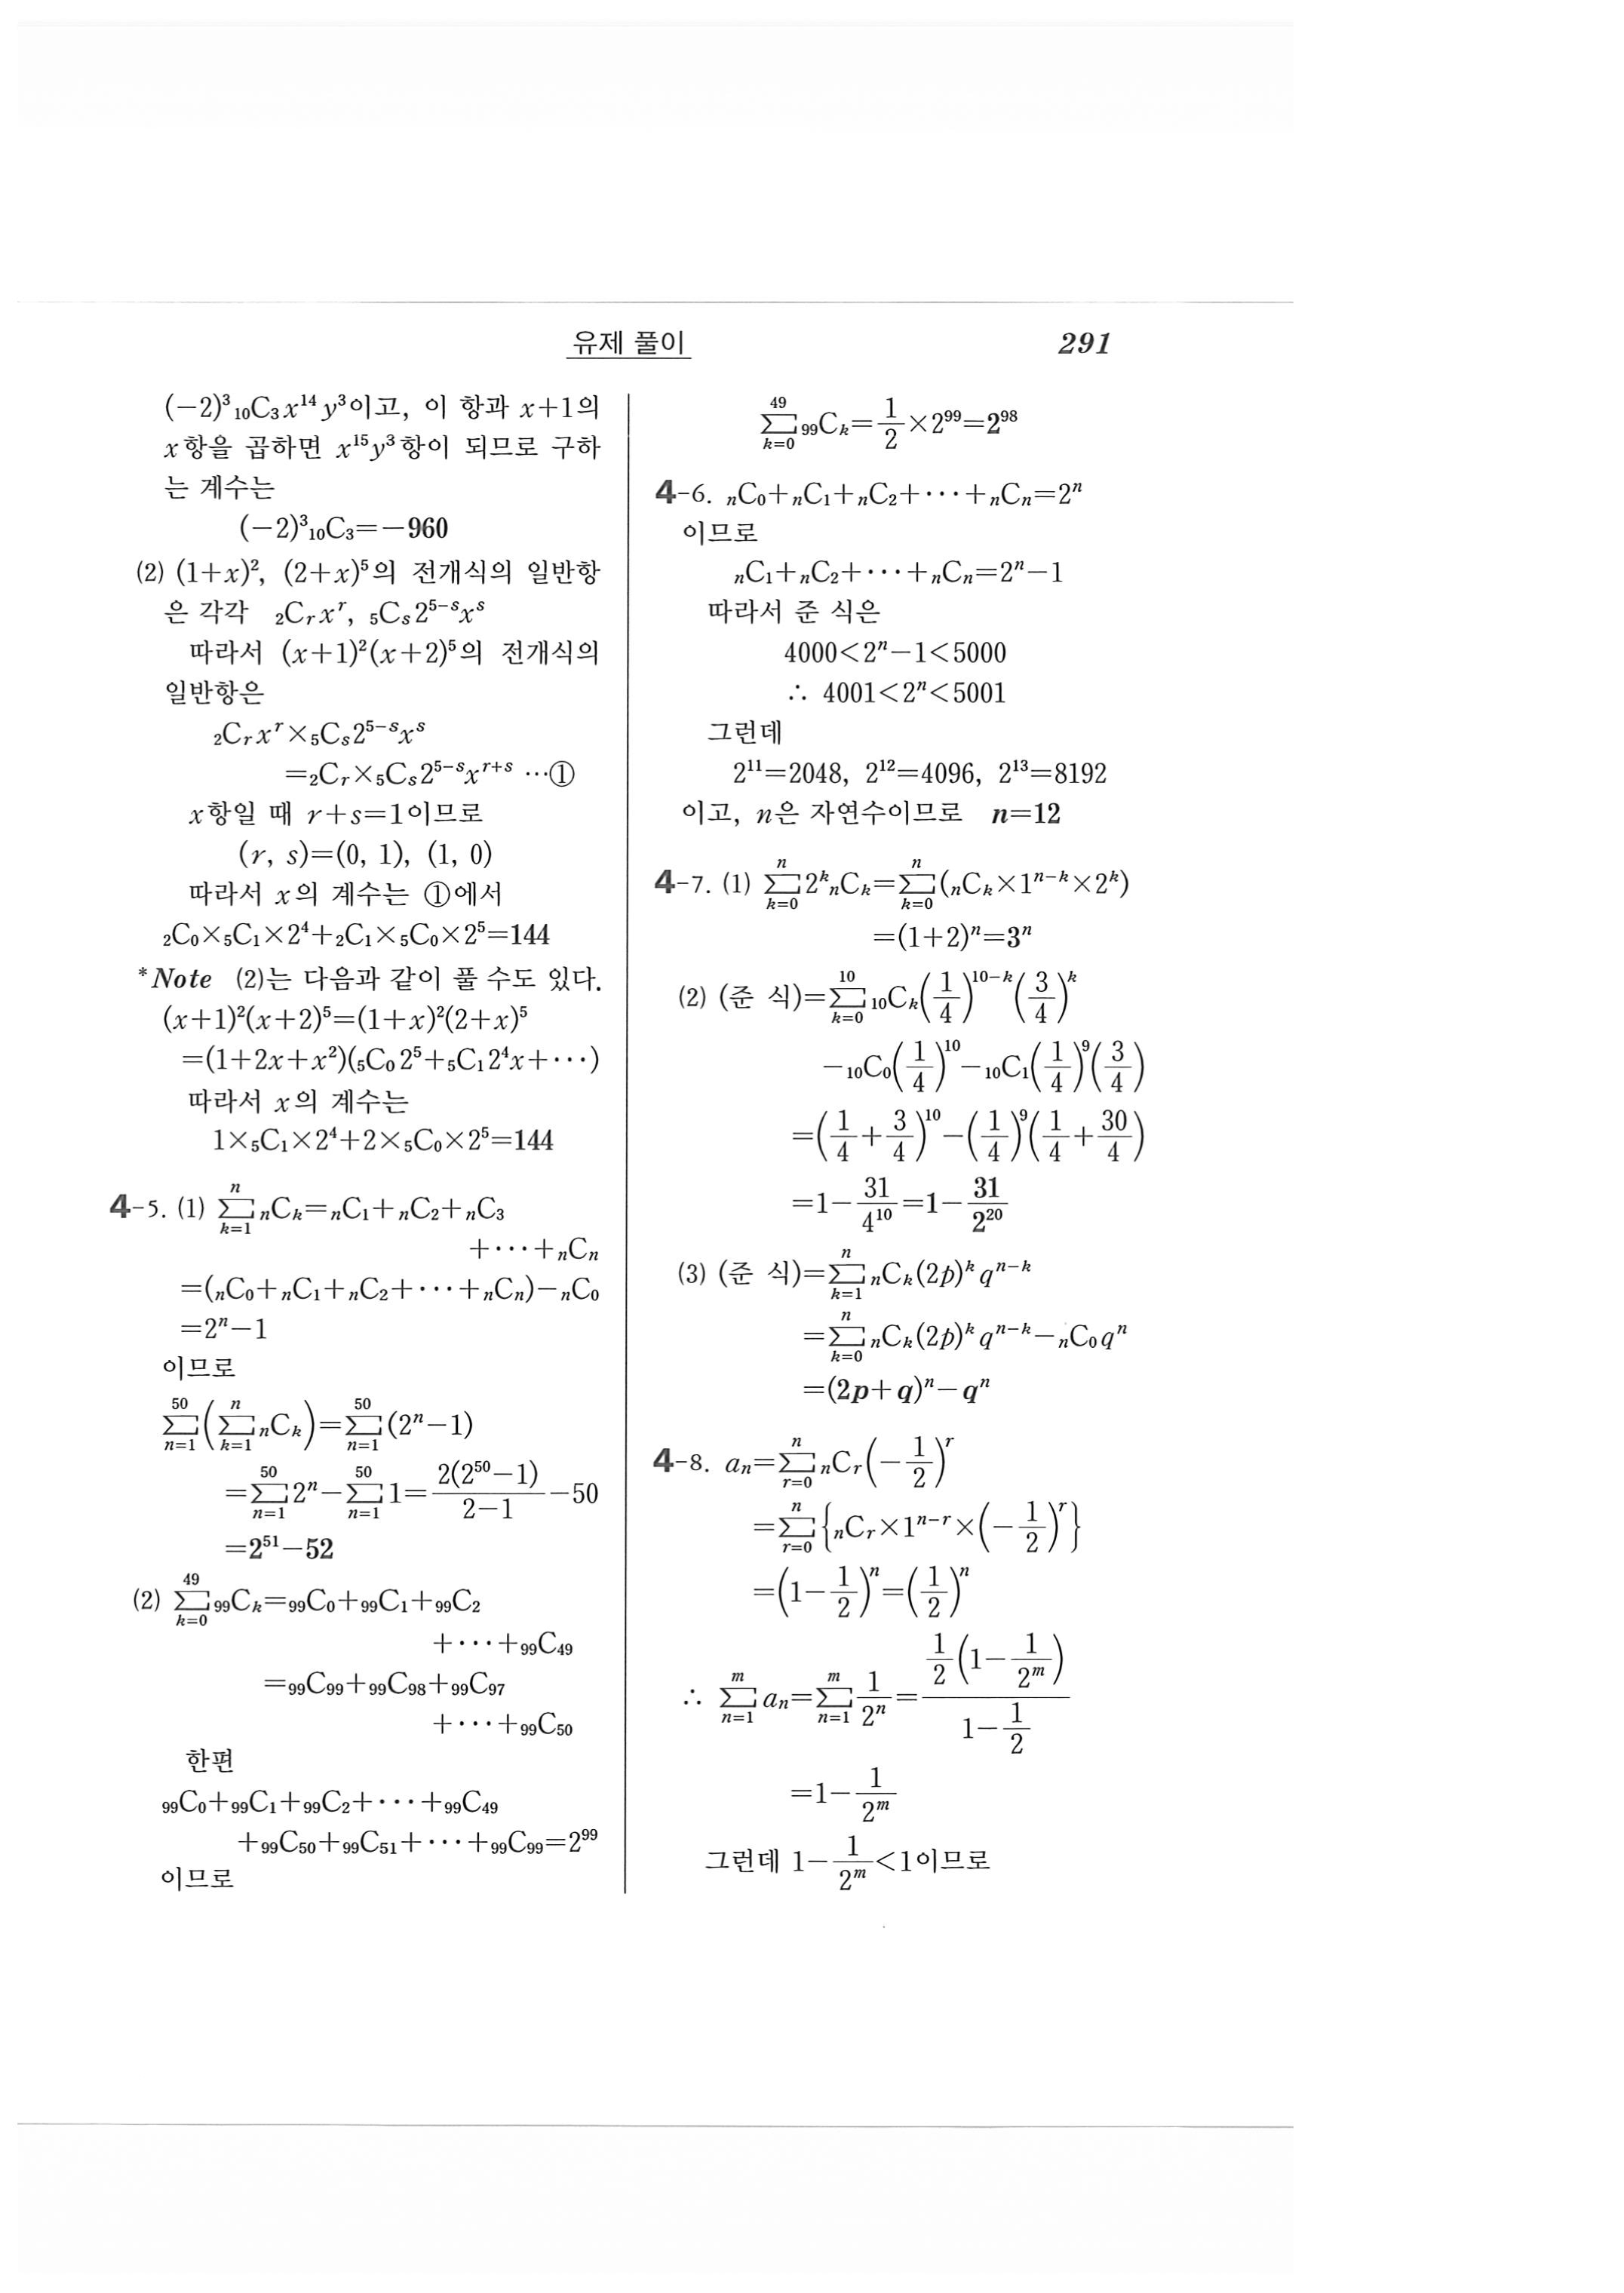 유제 풀이
291
(−2)³₁₀C₃x¹⁴y³이고, 이 항과 x+1의
x항을 곱하면 x¹⁵y³항이 되므로 구하
는 계수는
(−2)³₁₀C₃=−960
(2) (1+x)², (2+x)⁵의 전개식의 일반항
은 각각 ₂Cᵣxʳ, ₅Cₛ2⁵⁻ˢxˢ
따라서 (x+1)²(x+2)⁵의 전개식의
일반항은
₂Cᵣxʳ×₅Cₛ2⁵⁻ˢxˢ
=₂Cᵣ×₅Cₛ2⁵⁻ˢxʳ⁺ˢ …①
x항일 때 r+s=1이므로
(r, s)=(0, 1), (1, 0)
따라서 x의 계수는 ①에서
₂C₀×₅C₁×2⁴+₂C₁×₅C₀×2⁵=144
*Note (2)는 다음과 같이 풀 수도 있다.
(x+1)²(x+2)⁵=(1+x)²(2+x)⁵
=(1+2x+x²)(₅C₀2⁵+₅C₁2⁴x+···)
따라서 x의 계수는
1×₅C₁×2⁴+2×₅C₀×2⁵=144
4-5. (1) \sum_{k=1}^{n} ₙCₖ=ₙC₁+ₙC₂+ₙC₃
+···+ₙCₙ
=(ₙC₀+ₙC₁+ₙC₂+···+ₙCₙ)−ₙC₀
=2ⁿ−1
이므로
\sum_{n=1}^{50}(\sum_{k=1}^{n} ₙCₖ)=\sum_{n=1}^{50}(2ⁿ−1)
=\sum_{n=1}^{50}2ⁿ−\sum_{n=1}^{50}1=\frac{2(2⁵⁰−1)}{2−1}−50
=2⁵¹−52
(2) \sum_{k=0}^{49} ₉₉Cₖ=₉₉C₀+₉₉C₁+₉₉C₂
+···+₉₉C₄₉
=₉₉C₉₉+₉₉C₉₈+₉₉C₉₇
+···+₉₉C₅₀
한편
₉₉C₀+₉₉C₁+₉₉C₂+···+₉₉C₄₉
+₉₉C₅₀+₉₉C₅₁+···+₉₉C₉₉=2⁹⁹
이므로
\sum_{k=0}^{49} ₉₉Cₖ=\frac{1}{2}×2⁹⁹=2⁹⁸
4-6. ₙC₀+ₙC₁+ₙC₂+···+ₙCₙ=2ⁿ
이므로
ₙC₁+ₙC₂+···+ₙCₙ=2ⁿ−1
따라서 준 식은
4000<2ⁿ−1<5000
∴ 4001<2ⁿ<5001
그런데
2¹¹=2048, 2¹²=4096, 2¹³=8192
이고, n은 자연수이므로 n=12
4-7. (1) \sum_{k=0}^{n}2ᵏₙCₖ=\sum_{k=0}^{n}(ₙCₖ×1ⁿ⁻ᵏ×2ᵏ)
=(1+2)ⁿ=3ⁿ
(2) (준 식)=\sum_{k=0}^{10} ₁₀Cₖ(\frac{1}{4})¹⁰⁻ᵏ(\frac{3}{4})ᵏ
−₁₀C₀(\frac{1}{4})¹⁰−₁₀C₁(\frac{1}{4})⁹(\frac{3}{4})
=(\frac{1}{4}+\frac{3}{4})¹⁰−(\frac{1}{4})⁹(\frac{1}{4}+\frac{30}{4})
=1−\frac{31}{4¹⁰}=1−\frac{31}{2²⁰}
(3) (준 식)=\sum_{k=1}^{n} ₙCₖ(2p)ᵏqⁿ⁻ᵏ
=\sum_{k=0}^{n} ₙCₖ(2p)ᵏqⁿ⁻ᵏ−ₙC₀qⁿ
=(2p+q)ⁿ−qⁿ
4-8. aₙ=\sum_{r=0}^{n} ₙCᵣ(−\frac{1}{2})ʳ
=\sum_{r=0}^{n}{ₙCᵣ×1ⁿ⁻ʳ×(−\frac{1}{2})ʳ}
=(1−\frac{1}{2})ⁿ=(\frac{1}{2})ⁿ
∴ \sum_{n=1}^{m}aₙ=\sum_{n=1}^{m}\frac{1}{2ⁿ}=\frac{\frac{1}{2}(1−\frac{1}{2ᵐ})}{1−\frac{1}{2}}
=1−\frac{1}{2ᵐ}
그런데 1−\frac{1}{2ᵐ}<1이므로